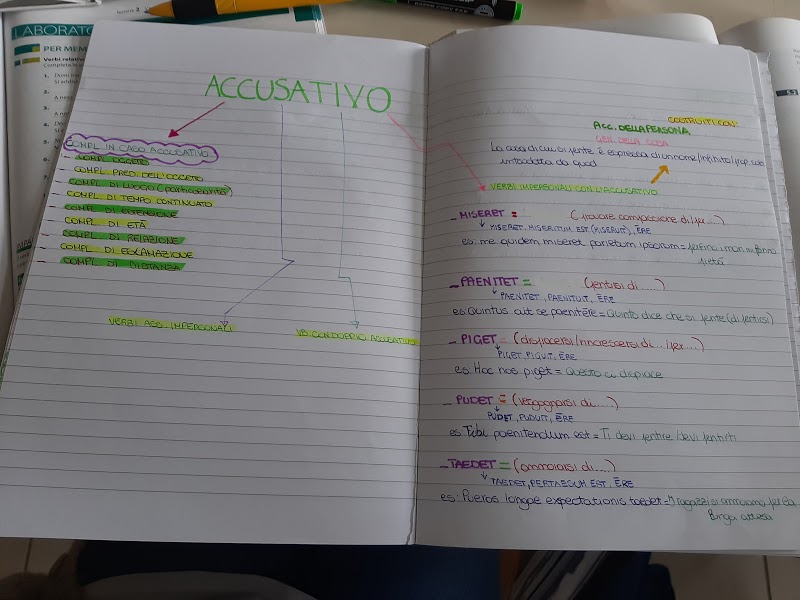 LABORATO
PER MEM
Verbi relativ
ACCUSATIVO
COMPL IN CASO ACCUSATIVO
- COMPL OGGETTO
- COMPL PRED. DELL'OGGETTO
- COMPL DI LUOGO
- COMPL DI TEMPO CONTINUATO
- COMPL DI ESTENSIONE
- COMPL DI ETÀ
- COMPL DI RELAZIONE
- COMPL DI ESCLAMAZIONE
- COMPL DI DISTANZA
VERBI ASS. IMPERSONALI
VB CON DOPPIO ACCUSATIVO
COSTRUITI CON:
ACC. DELLA PERSONA
GEN. DELLA COSA
La cosa di cui si sente è espressa di un nome/infinito/prop. sub
introdotta da quod
VERBI IMPERSONALI CON L'ACCUSATIVO
- MISERET = (provare compassione di/per....)
MISERET, MISERITUM EST (MISERUIT), ĒRE
es: me quidem miseret parietum ipsorum = perfino i muri mi fanno
pietà
- PAENITET = (pentirsi di.....)
PAENITET, PAENITUIT, ĒRE
es: Quintus ait se paenitēre = Quinto dice che si pente (di pentirsi)
- PIGET = (dispiacersi/rincrescersi di.../per...)
PIGET, PIGUIT, ĒRE
es: Hoc nos piget = Questo ci dispiace
- PUDET = (vergognarsi di.....)
PUDET, PUDUIT, ĒRE
es. Tibi paenitendum est = Ti devi pentire/devi pentirti
- TAEDET = (annoiarsi di.....)
TAEDET, PERTAESUM EST, ĒRE
es: Pueros longae expectationis taedet = I ragazzi si annoiano per la
lunga attesa